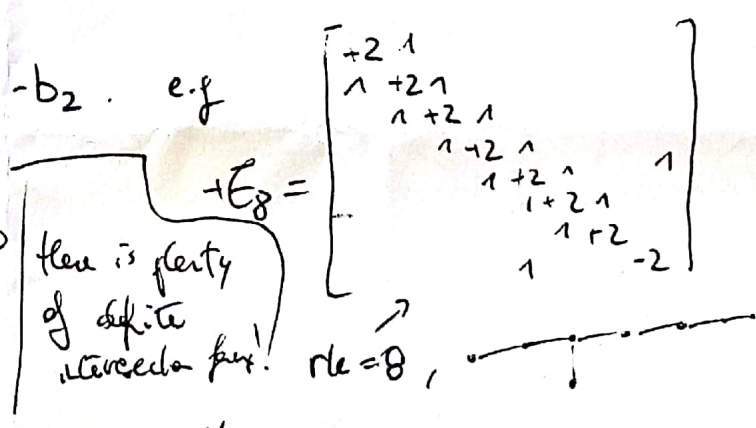 -b₂. e.g
+E₈ =
+2 1
1 +2 1
1 +2 1
1 +2 1
1 +2 1 1
1 +2 1
1 +2
1 -2
there is plenty
of definite
intersection form!
rk = 8,